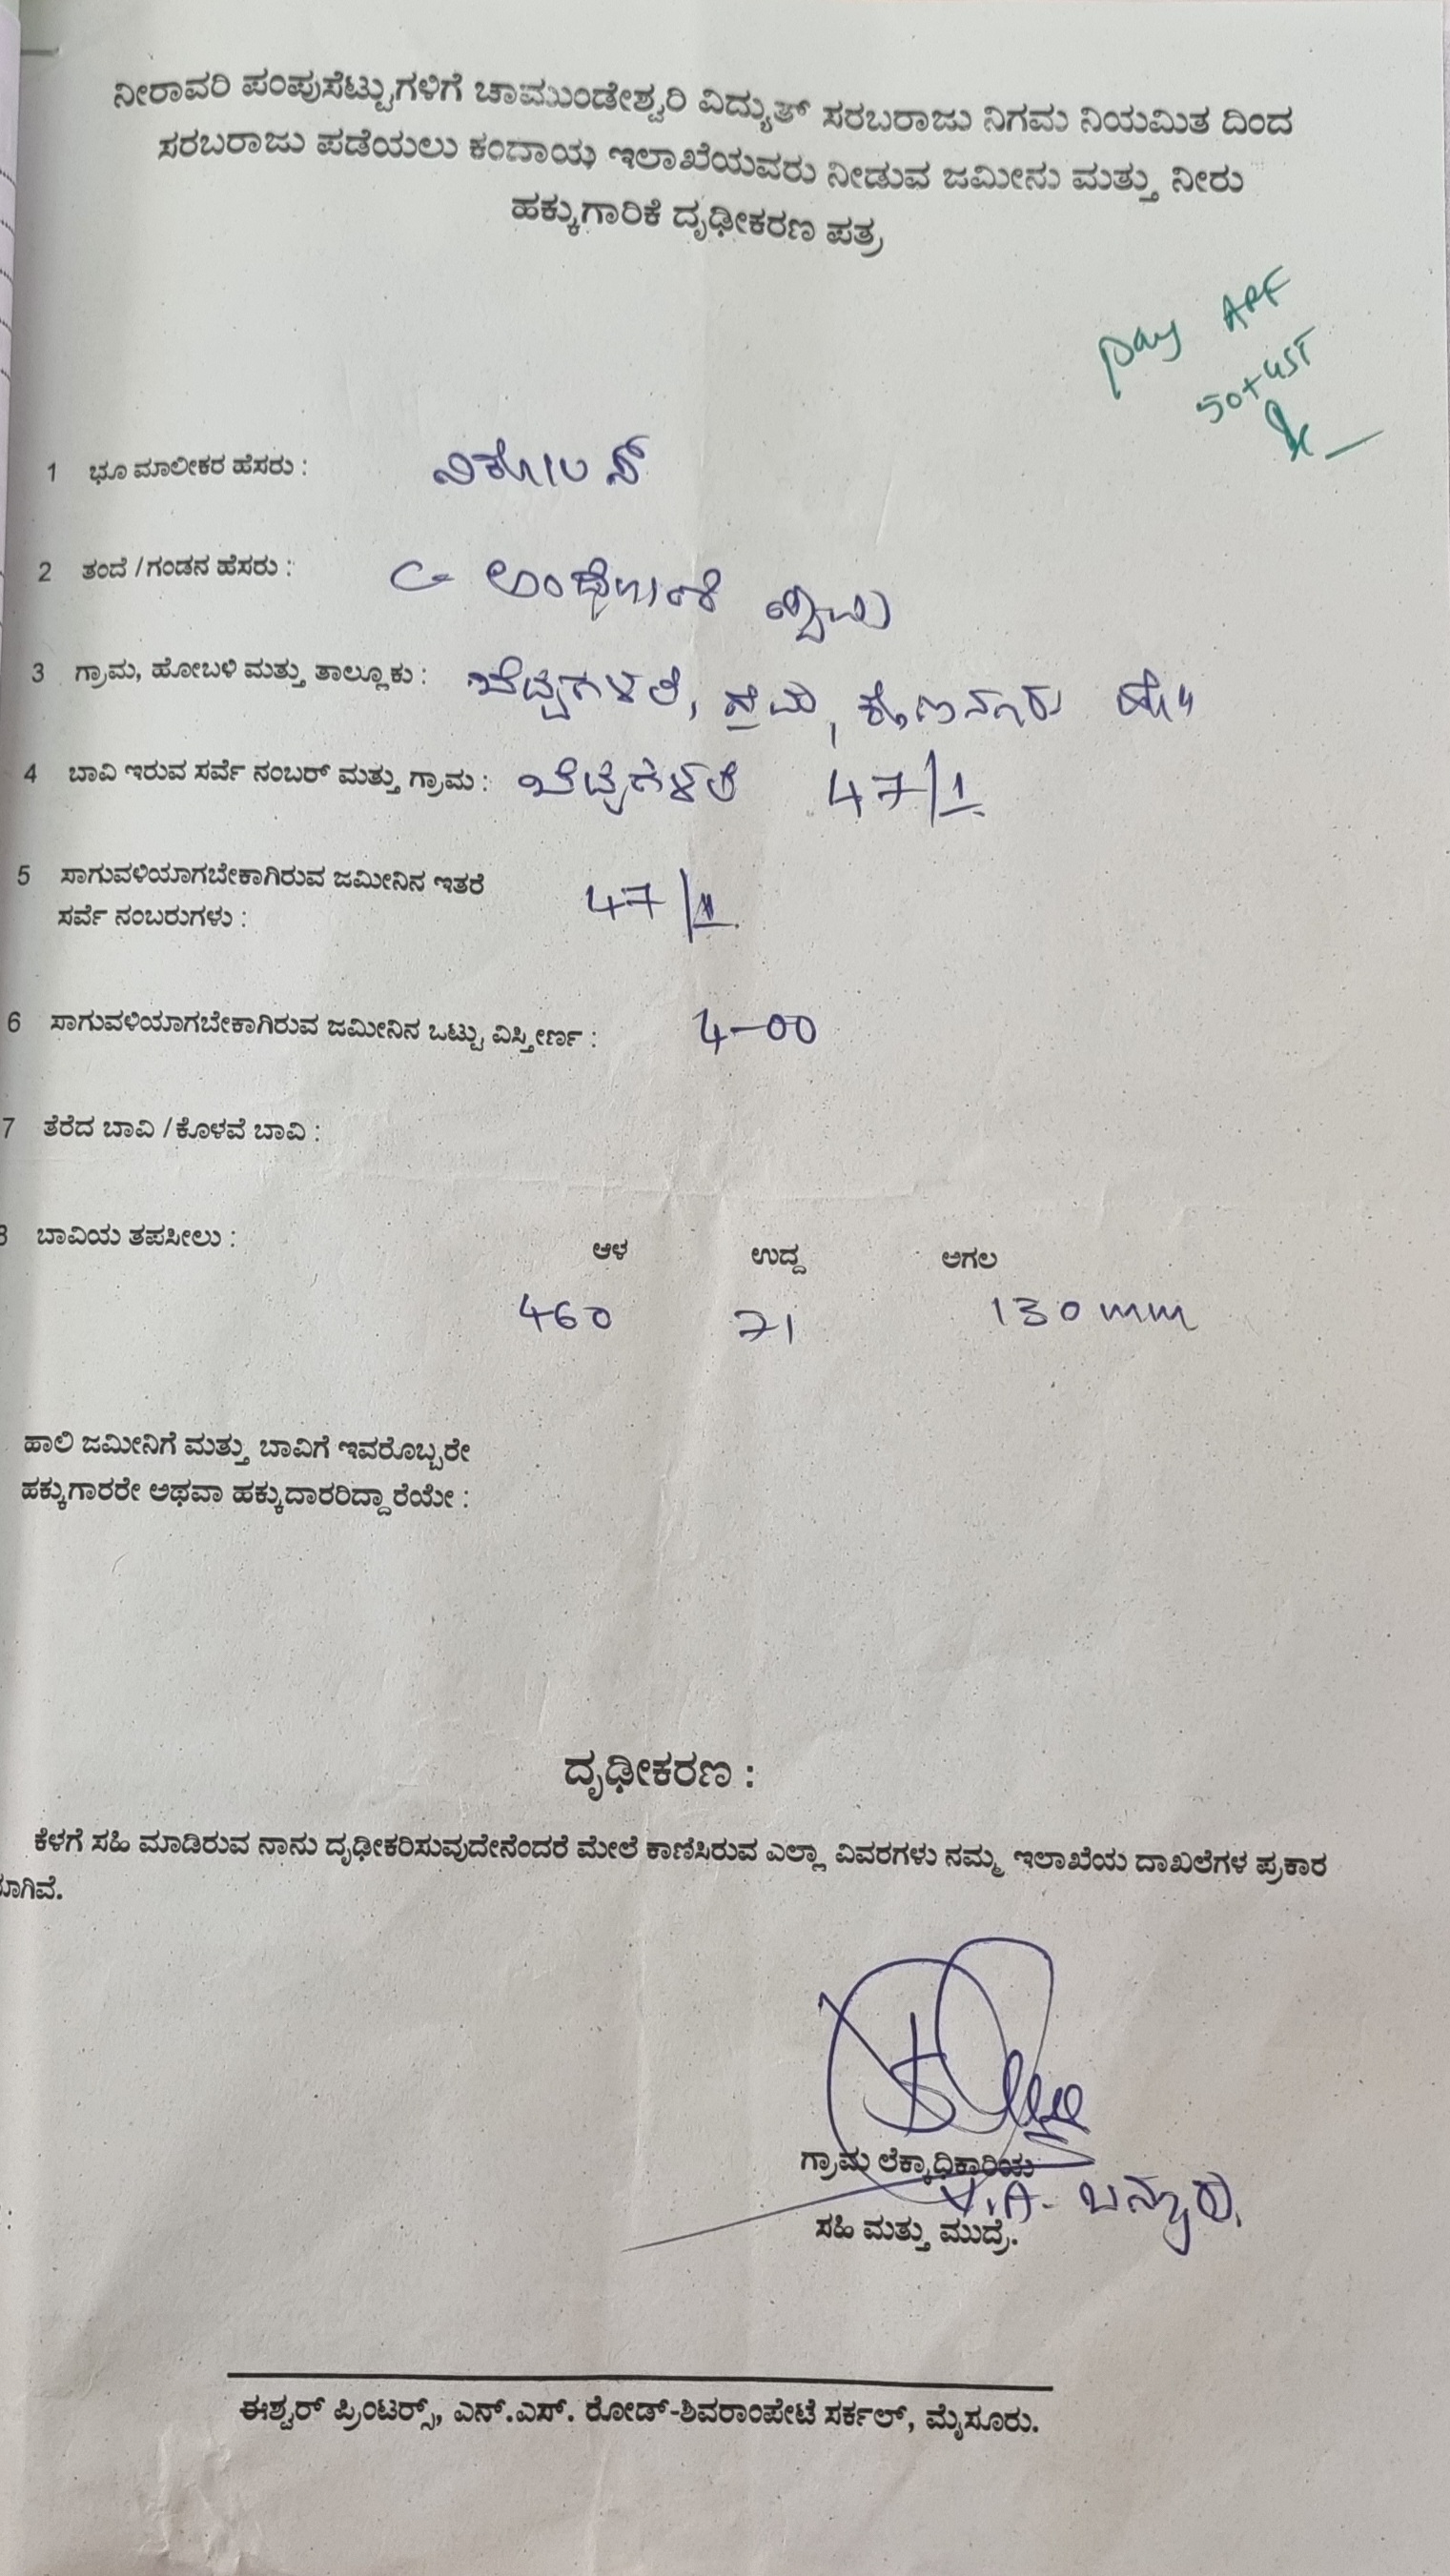 ನೀರಾವರಿ ಪಂಪುಸೆಟ್ಟುಗಳಿಗೆ ಚಾಮುಂಡೇಶ್ವರಿ ವಿದ್ಯುತ್ ಸರಬರಾಜು ನಿಗಮ ನಿಯಮಿತ ದಿಂದ
ಸರಬರಾಜು ಪಡೆಯಲು ಕಂದಾಯ ಇಲಾಖೆಯವರು ನೀಡುವ ಜಮೀನು ಮತ್ತು ನೀರು
ಹಕ್ಕುಗಾರಿಕೆ ದೃಢೀಕರಣ ಪತ್ರ
pay ARF
50+GST
1 ಭೂ ಮಾಲೀಕರ ಹೆಸರು :
2 ತಂದೆ / ಗಂಡನ ಹೆಸರು :
3 ಗ್ರಾಮ, ಹೋಬಳಿ ಮತ್ತು ತಾಲ್ಲೂಕು :
4 ಬಾವಿ ಇರುವ ಸರ್ವೆ ನಂಬರ್ ಮತ್ತು ಗ್ರಾಮ : 47/1
5 ಸಾಗುವಳಿಯಾಗಬೇಕಾಗಿರುವ ಜಮೀನಿನ ಇತರೆ
ಸರ್ವೆ ನಂಬರುಗಳು : 47/1
6 ಸಾಗುವಳಿಯಾಗಬೇಕಾಗಿರುವ ಜಮೀನಿನ ಒಟ್ಟು ವಿಸ್ತೀರ್ಣ : 4-00
7 ತೆರೆದ ಬಾವಿ / ಕೊಳವೆ ಬಾವಿ :
8 ಬಾವಿಯ ತಪಸೀಲು :
ಆಳ ಉದ್ದ ಅಗಲ
460 71 130 mm
ಹಾಲಿ ಜಮೀನಿಗೆ ಮತ್ತು ಬಾವಿಗೆ ಇವರೊಬ್ಬರೇ
ಹಕ್ಕುಗಾರರೇ ಅಥವಾ ಹಕ್ಕುದಾರರಿದ್ದಾರೆಯೇ :
ದೃಢೀಕರಣ :
ಕೆಳಗೆ ಸಹಿ ಮಾಡಿರುವ ನಾನು ದೃಢೀಕರಿಸುವುದೇನೆಂದರೆ ಮೇಲೆ ಕಾಣಿಸಿರುವ ಎಲ್ಲಾ ವಿವರಗಳು ನಮ್ಮ ಇಲಾಖೆಯ ದಾಖಲೆಗಳ ಪ್ರಕಾರ
ಗ್ರಾಮ ಲೆಕ್ಕಾಧಿಕಾರಿಯ
V.A.
ಸಹಿ ಮತ್ತು ಮುದ್ರೆ.
ಈಶ್ವರ್ ಪ್ರಿಂಟರ್ಸ್, ಎನ್.ಎಸ್. ರೋಡ್-ಶಿವರಾಂಪೇಟೆ ಸರ್ಕಲ್, ಮೈಸೂರು.